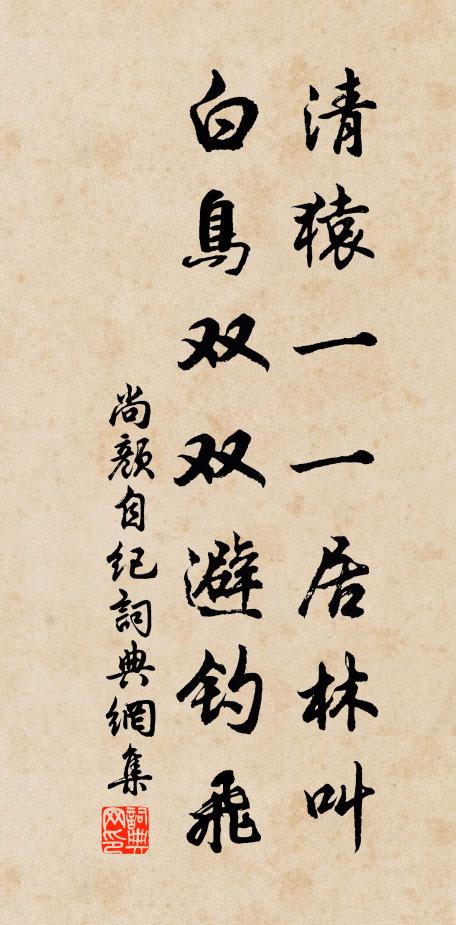 清猿一一居林叫
白鳥双双避钓飛
尚顏自纪詞典網集
詞典網印